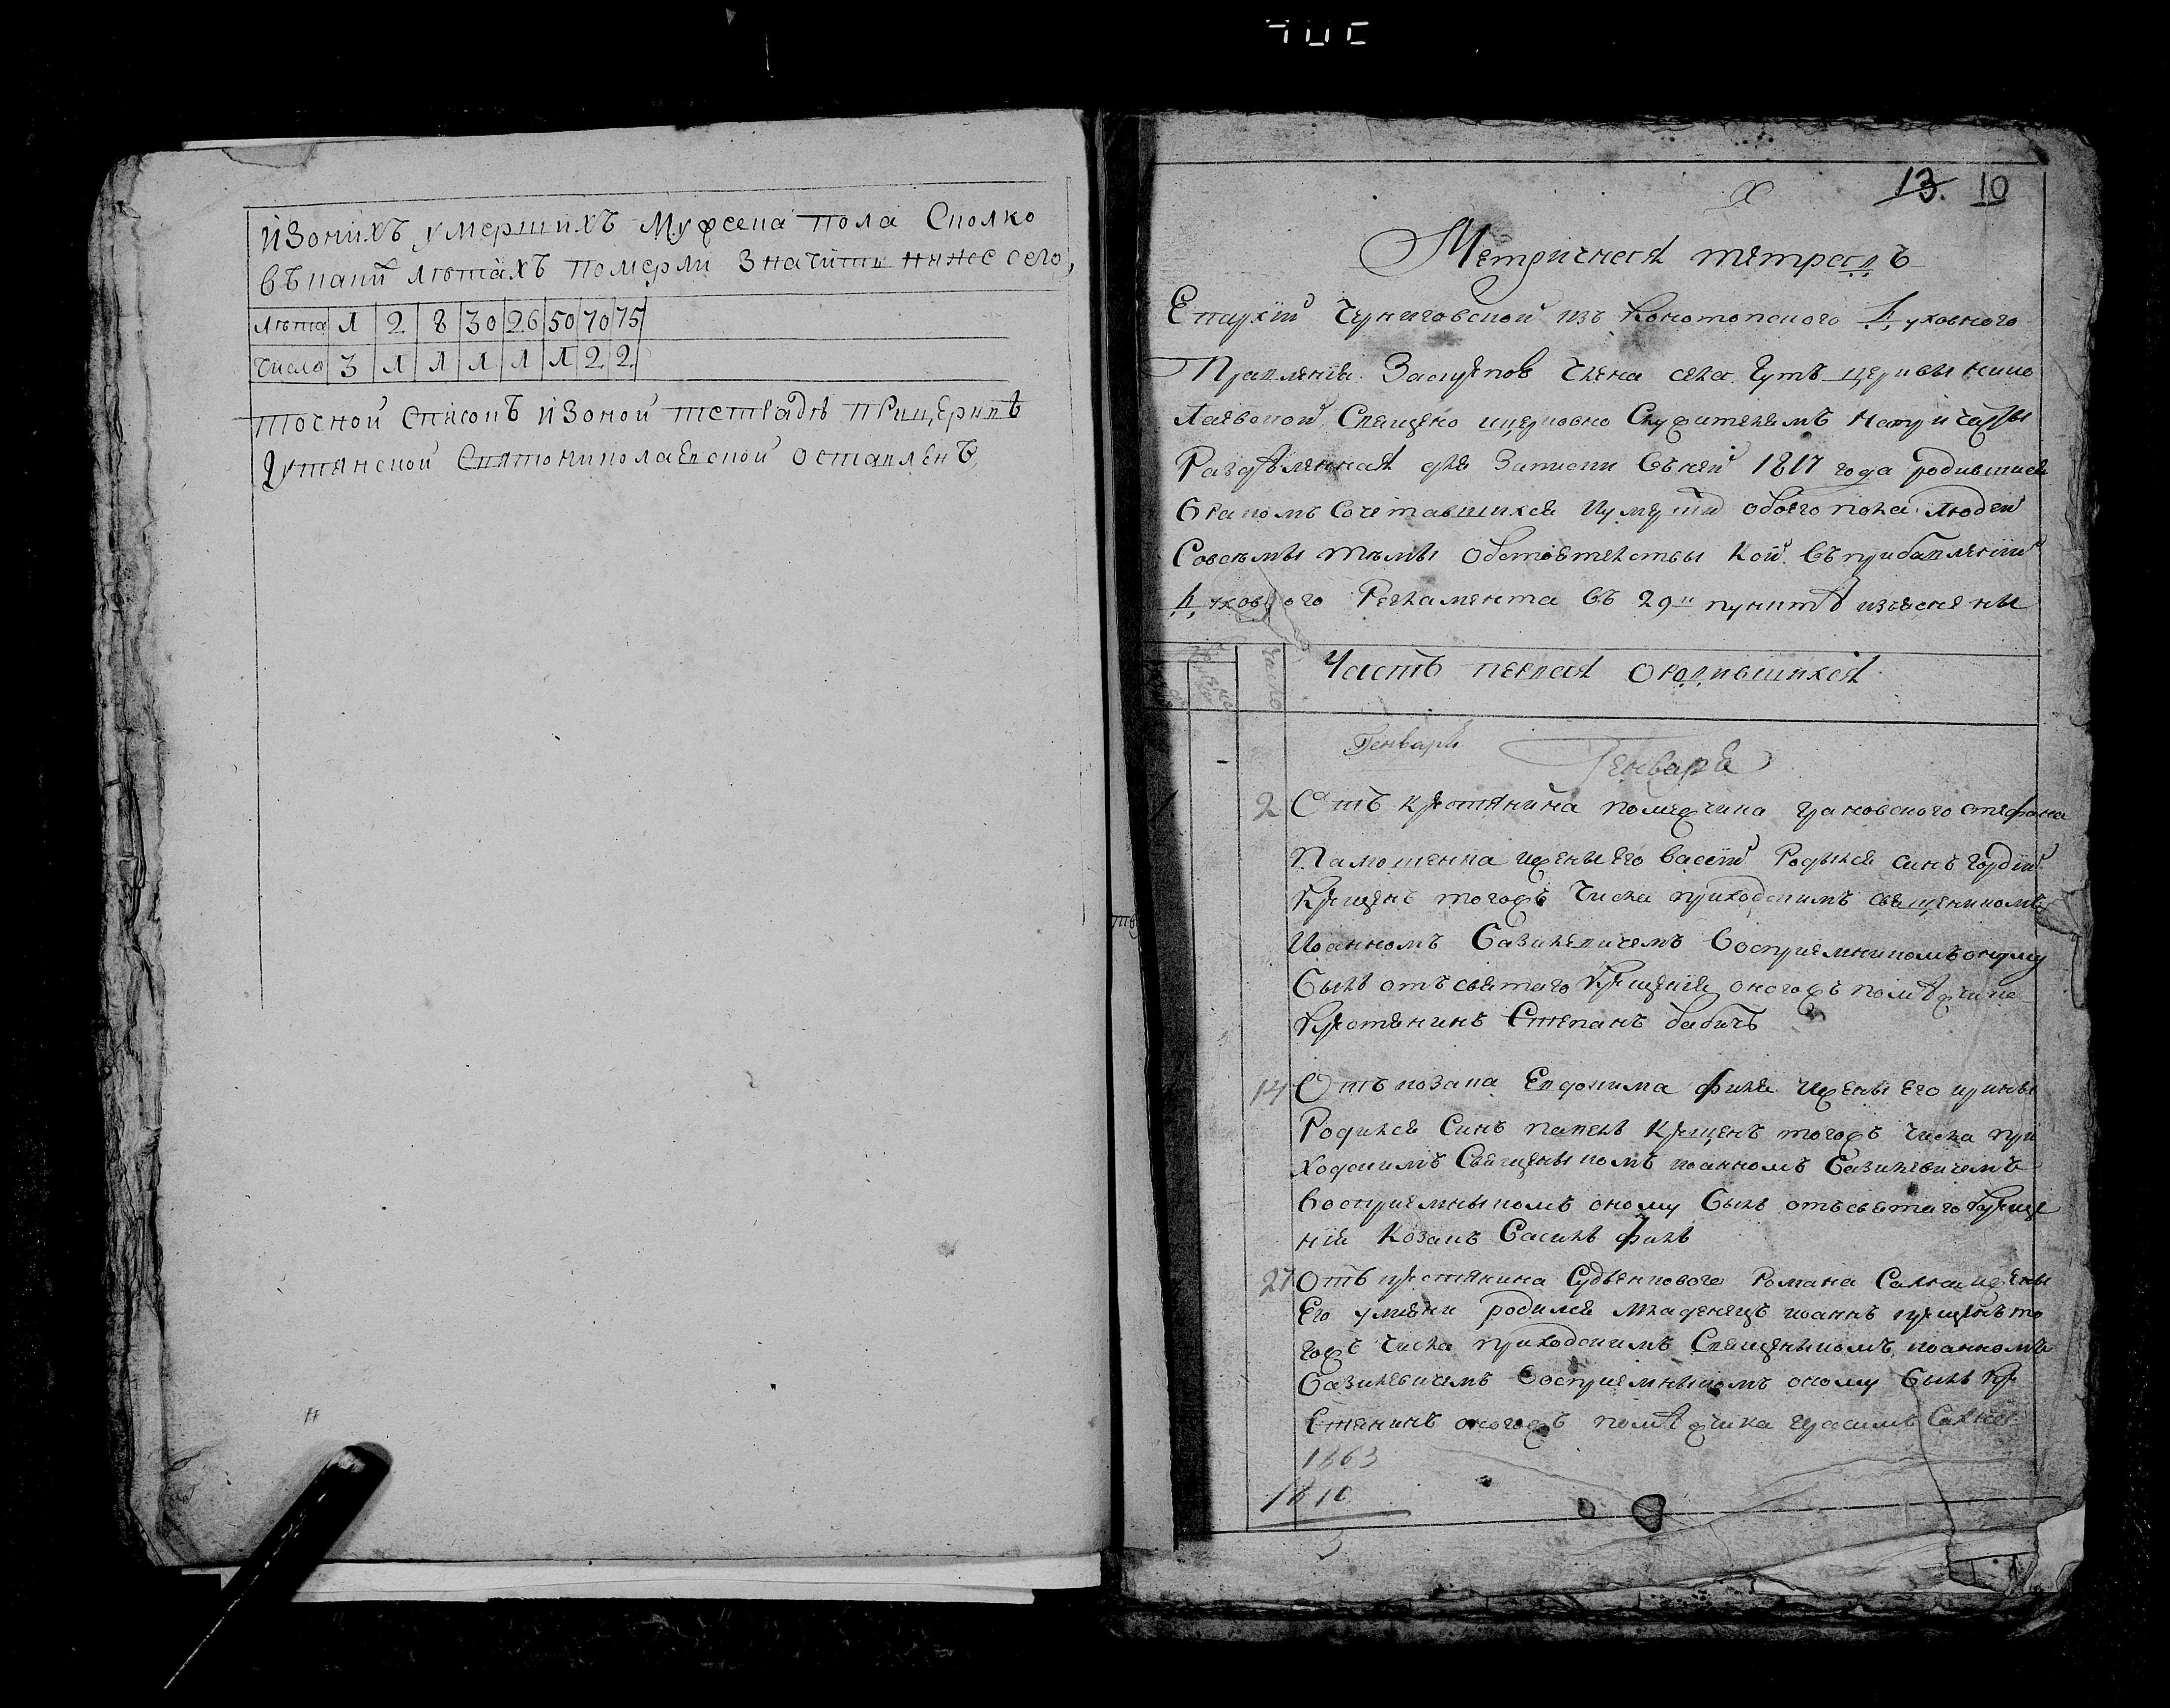 изонихъ умершихъ Мужеска пола Сколко
въкакй лѣтахъ померли Значитъ нижесего,
лѣта 1 2 8 30 26 50 70 75
число 3 1 1 1 1 1 2 2
Списокъ изоной тетрадѣ прицерквѣ
Гутянской Святониколаевской оставленъ,
13. 10
Метрическая тетрадъ
Епархїи Черниговской изъ Конотопского Духовного
Правленія села Гутъ церквы
Священо ицерковно Служителемъ Натричасты
Раздѣленная для Записки Внеи 1817 года родившися
бракомъ Сочетавшихся Иумершй обоего пола людеи
Совсѣмы тѣмы обстоятелствы Кой въприбавленїи
Духовного Регламента въ 29м пунктѣ изяснены
число
Часть первая ородившихся
Генваря
Генваря
2 Отъ крестянина помещика Грановского стефана
ижены его вассїи Родился синъ гордїи
Крещенъ тогожъ числа приходскимъ священикомъ
Иоанномъ Базилевичемъ Восприемникомъ оному
былъ отъ святаго Крещенія оногожъ помѣщика
Крестянинъ Степанъ бабичъ
14 Отъ козака Евдокима филя ижены его ирины
Родился Синъ павелъ Крещенъ тогожъ числа при
ходскимъ Священыкомъ иоанномъ Базилевичемъ
восприемныкомъ оному былъ отъ святаго Креще
нія Козакъ Василь филь
27 Отъ крестянина Судьенкового Романа ижены
Его улияни родился младенецъ иоаннъ крещенъ то
гожъ числа приходскимъ Священыкомъ иоанномъ
Базилевичемъ Восприемныкомъ оному былъ кре
стянинъ оногожъ помѣщика герасимъ
1863
1810
3